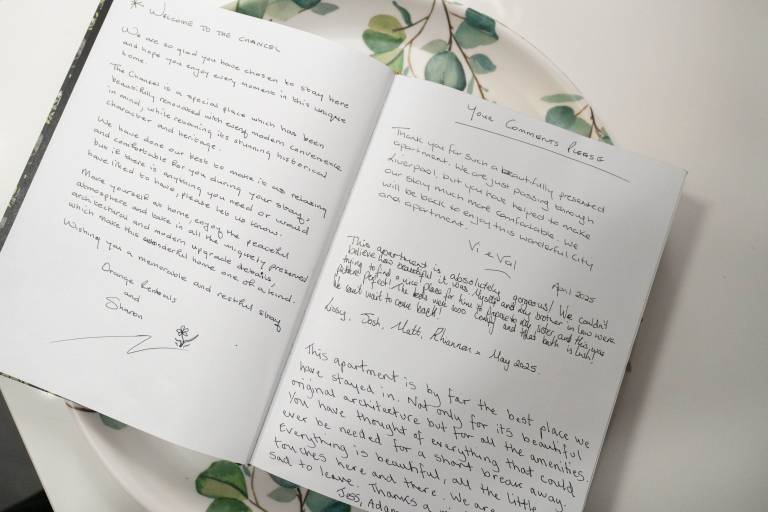 * WELCOME TO THE CHANCEL
We are so glad you have chosen to stay here
and hope you enjoy every moment in this unique
home.
The Chancel is a special place which has been
beautifully renovated with every modern convenience
in mind, while retaining its stunning historical
character and heritage.
We have done our best to make it as relaxing
and comfortable for you during your stay,
but if there is anything you need or would
have liked to have, please let us know.
Make yourself at home, enjoy the peaceful
atmosphere and bask in all the uniquely preserved
architectural and modern upgrade details,
which make this wonderful home one of a kind.
Wishing you a memorable and restful stay
Orange Rentals
and
Sharon
Your Comments Please
Thank you for such a beautifully presented
apartment. We are just passing through
Liverpool, but you have helped to make
our stay much more comfortable. We
will be back to enjoy this wonderful city
and apartment.
Vi & Val
April 2025
This apartment is absolutely gorgeous! We couldn't
believe how beautiful it was. Myself and my brother in law were
trying to find a nice place for him to propose to my sister, and this was
picture perfect! The beds were sooo comfy and that bath is lush!
We can't wait to come back!
Lucy, Josh, Matt, Rhiannon x May 2025.
This apartment is by far the best place we
have stayed in. Not only for its beautiful
original architecture but for all the amenities.
You have thought of everything that could
ever be needed for a short break away.
Everything is beautiful, all the little
touches here and there. We are
sad to leave. Thanks a
Jess, Adam